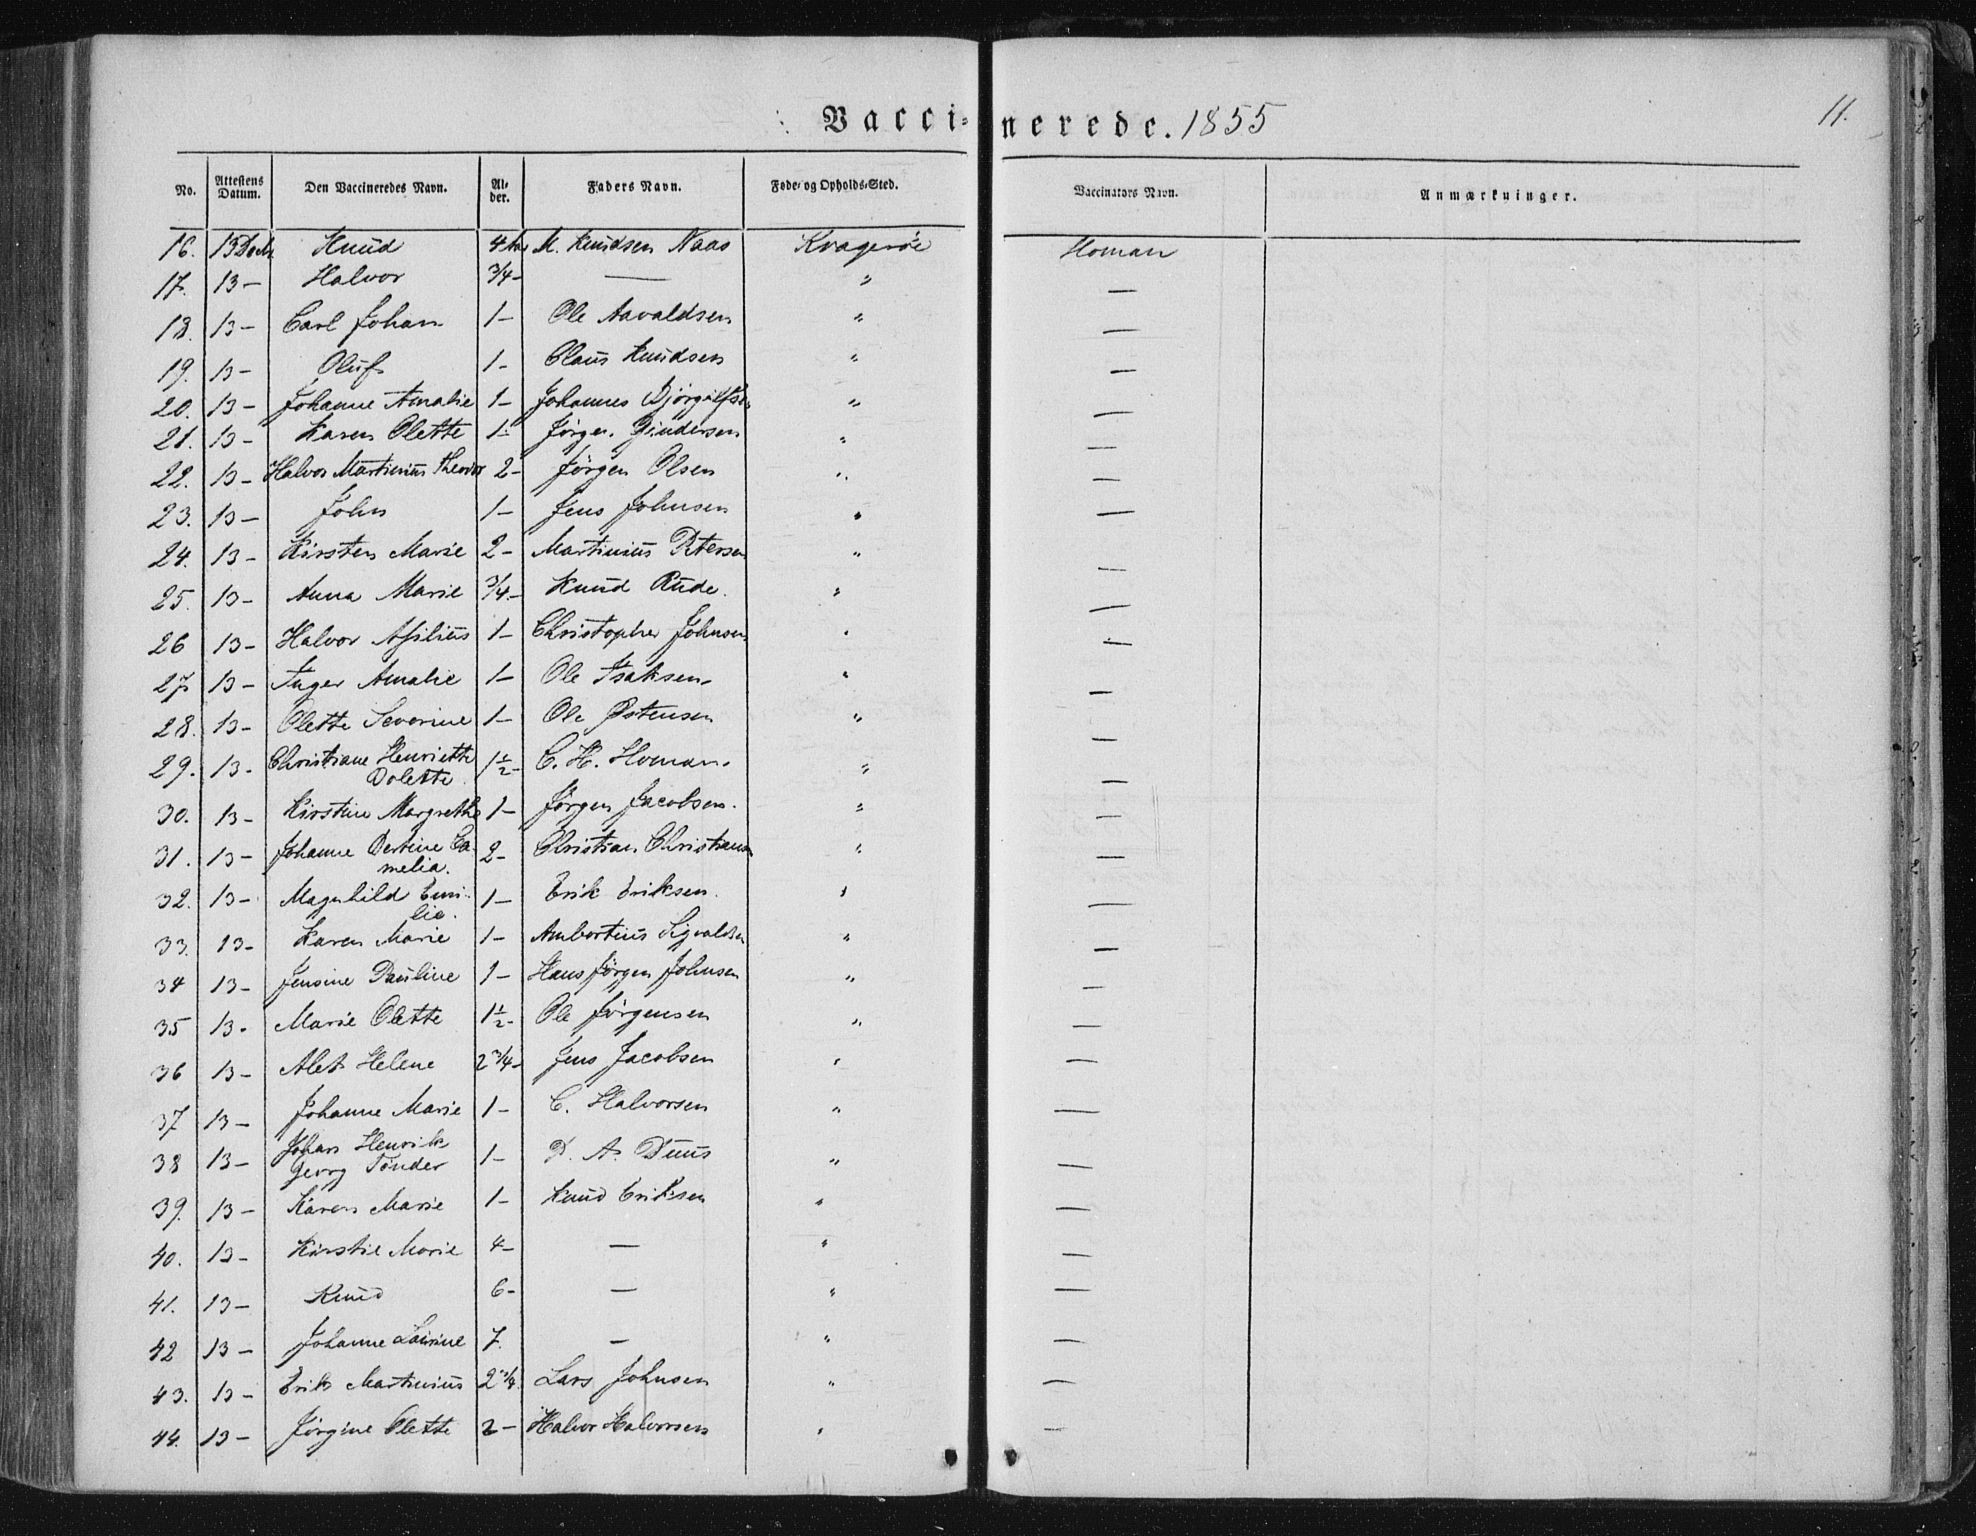 Vaccinerede. 1855
11.
No. Attestens Datum. Den Vaccineredes Navn. Alder. Faders Navn. Føde- og Opholds-Sted. Vaccinators Navn. Anmærkninger.
16. 13 Decbr Knud 4 M. Knudsen Naas Kragerøe Homan
17. 13 – Halvor 3/4 – — " —
18. 13 – Carl Johan 1 – Ole Aavaldsen " —
19. 13 – Oluf 1 – Claus Knudsen " —
20. 13 – Johanne Amalie 1 – Johannes Bjørgulfsen " —
21. 13 – Karen Olette 1 – Jørgen Gundersen " —
22. 13 – Halvor Martinius Theodor 2 – Jørgen Olsen " —
23. 13 – John 1 – Jens Johnsen " —
24. 13 – Kirsten Marie 2 – Martinius Petersen " —
25. 13 – Anna Marie 3/4 – Knud Rude. " —
26 13 – Halvor Assilius 1 – Christopher Johnsen " —
27 13 – Inger Amalie 1 – Ole Isaksen " —
28. 13 – Olette Severine 1 – Ole Østensen " —
29. 13 – Christiane Henriette 1 1/2 – C. H. Homan. " —
Dolette
30. 13 – Kirstine Margrethe 1 – Jørgen Jacobsen. " —
31. 13 – Johanne Bertine Ca- 2 – Christian Christiansen " —
melia.
32. 13 – Magnhild Emi- 1 – Erik Eriksen. " —
lie.
33. 13 – Karen Marie 1 – Ambortius Sigvaldsen " —
34 13 – Jensine Pauline 1 – Hans Jørgen Johnsen " —
35 13 – Marie Olette 1 1/2 – Ole Jørgensen " —
36 13 – Alet Helene 2 3/4 – Jens Jacobsen " —
37 13 – Johanne Marie 1 – C. Halvorsen " —
38 13 – Johan Henrik 1 – D. A. Duus " —
Georg Tønder
39. 13 – Karen Marie 1 – Knud Eriksen " —
40. 13 – Kirstie Marie 4 – — " —
41. 13 – Knud 6 – — " —
42 13 – Johanne Laurine 7. — " —
43. 13 – Erik Martinius 2 3/4 Lars Johnsen " —
44. 13 – Jørgine Olette 2 – Halvor Halvorsen " —